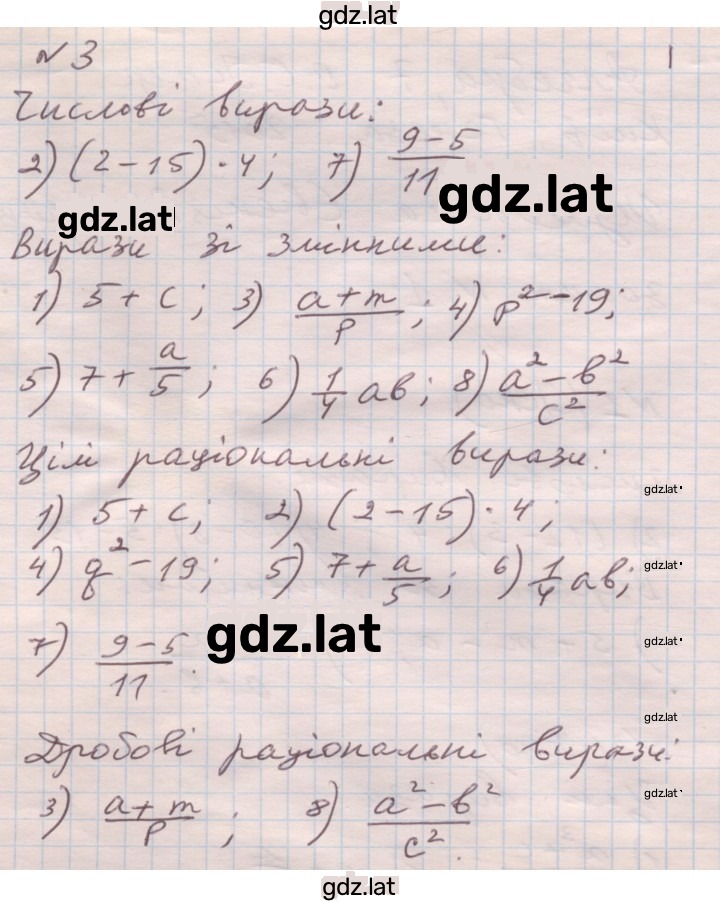 gdz.lat
№ 3 1
Числові вирази:
2) (2 - 15) · 4; 7) (9 - 5)/11
gdz.lat
gdz.lat
Вирази зі змінними:
1) 5 + c; 3) (a + m)/p; 4) p² - 19;
5) 7 + a/5; 6) 1/4 ab; 8) (a² - b²)/c²
Цілі раціональні вирази:
gdz.lat
1) 5 + c; 2) (2 - 15) · 4;
4) q² - 19; 5) 7 + a/5; 6) 1/4 ab;
gdz.lat
7) (9 - 5)/11.
gdz.lat
gdz.lat
gdz.lat
Дробові раціональні вирази:
3) (a + m)/p; 8) (a² - b²)/c².
gdz.lat
gdz.lat